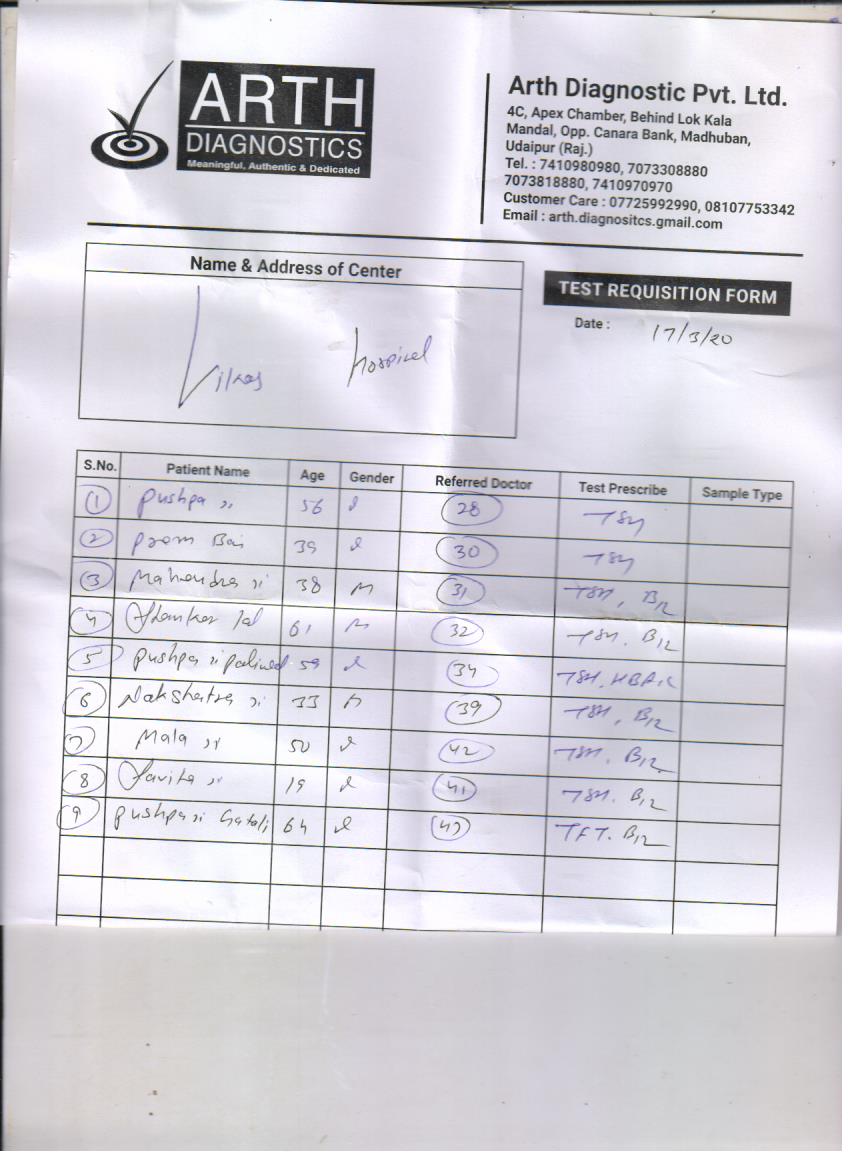 ARTH
DIAGNOSTICS
Meaningful, Authentic & Dedicated
Arth Diagnostic Pvt. Ltd.
4C, Apex Chamber, Behind Lok Kala
Mandal, Opp. Canara Bank, Madhuban,
Udaipur (Raj.)
Tel. : 7410980980, 7073308880
7073818880, 7410970970
Customer Care : 07725992990, 08107753342
Email : arth.diagnositcs.gmail.com
Name & Address of Center
TEST REQUISITION FORM
Date : 17/3/20
Hospital
S.No. Patient Name Age Gender Referred Doctor Test Prescribe Sample Type
1 Pushpa ji 56 28 TSH
2 Prem Bai 39 30 TSH
3 Mahendra ji 38 M 31 TSH, B12
4 Shankar lal 61 M 32 TSH. B12
5 Pushpa ji 59 34 TSH, HBA1C
6 Nakshatra ji 33 M 39 TSH, B12
7 Mala ji 50 42 TSH. B12
8 Savita ji 19 41 TSH. B12
9 Pushpa ji 64 TFT. B12